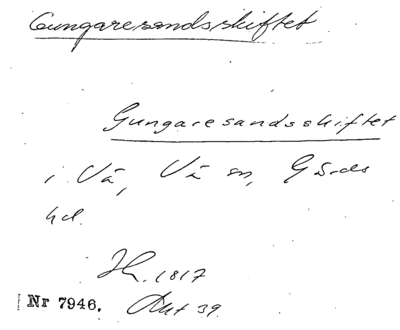 Gungaresandsskiftet
Gungaresandsskiftet
i Vä, Vä sn, Gärds
hd.
H. 1817
Nr 7946. Akt 39.